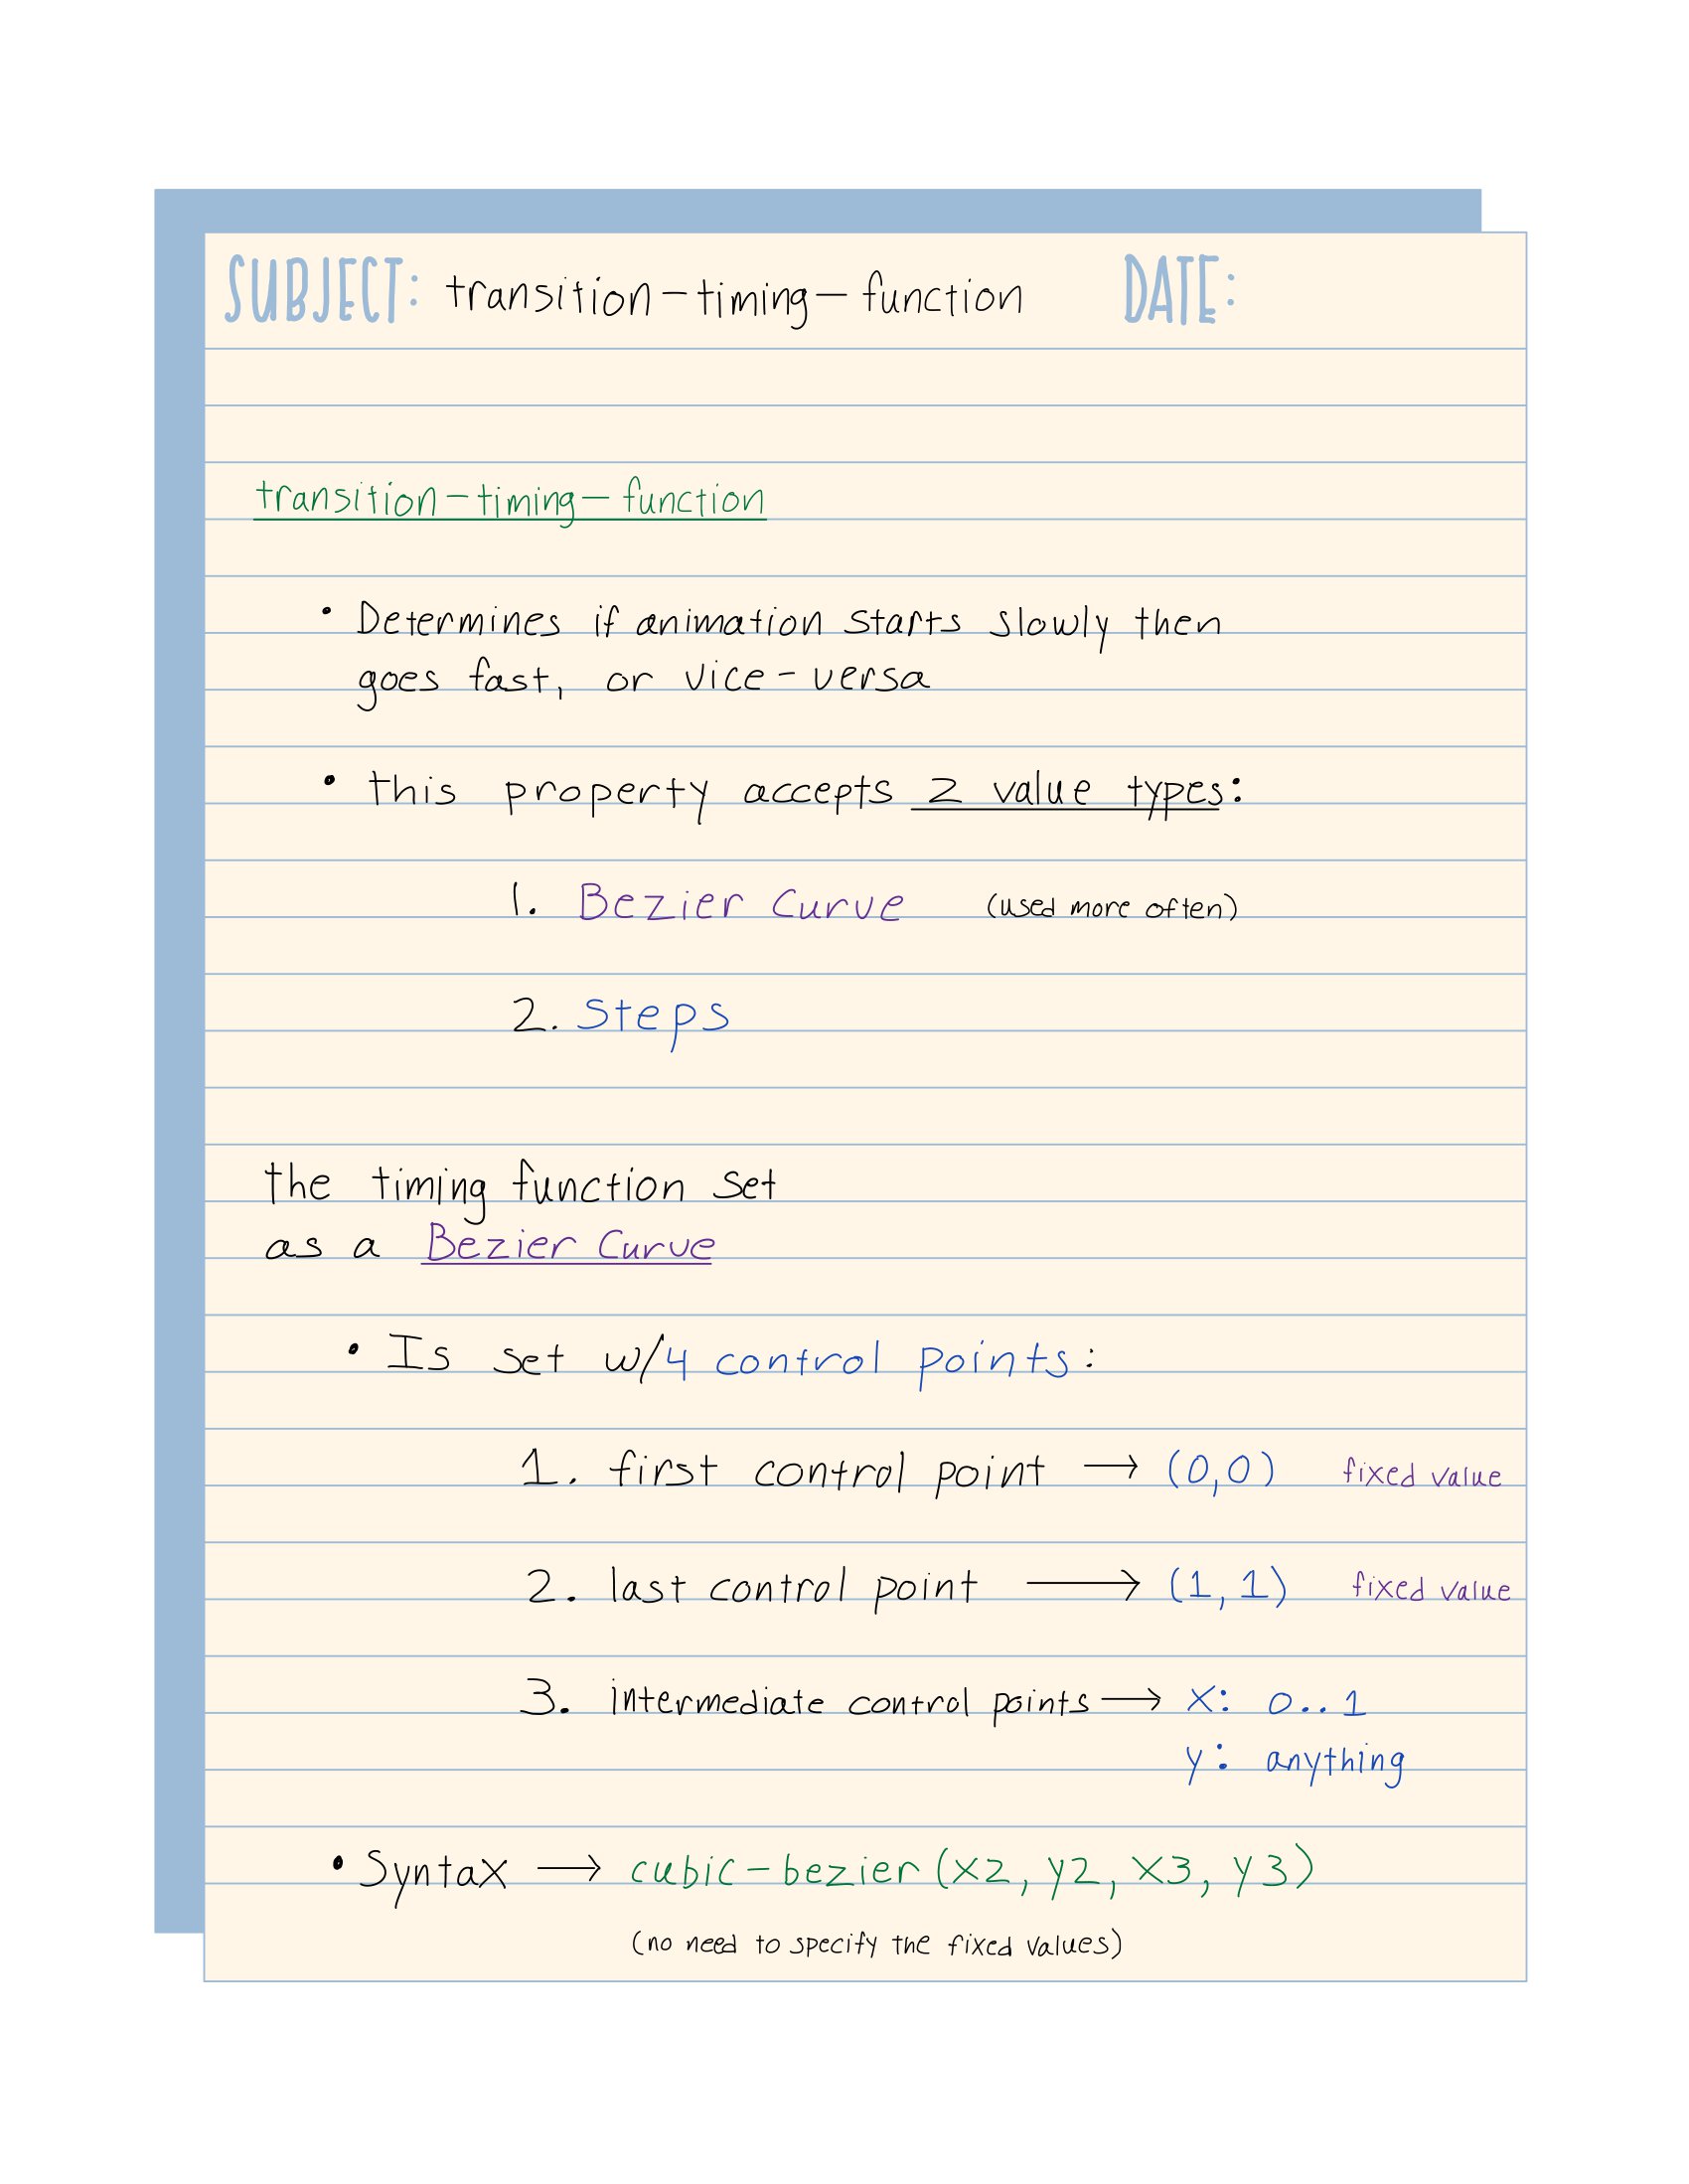 SUBJECT: transition-timing-function DATE:
transition-timing-function
• Determines if animation starts slowly then
goes fast, or vice-versa
• this property accepts 2 value types:
1. Bezier Curve (used more often)
2. Steps
the timing function set
as a Bezier Curve
• Is set w/4 control points:
1. first control point → (0,0) fixed value
2. last control point → (1,1) fixed value
3. intermediate control points → x: 0..1
y: anything
• Syntax → cubic-bezier(x2, y2, x3, y3)
(no need to specify the fixed values)